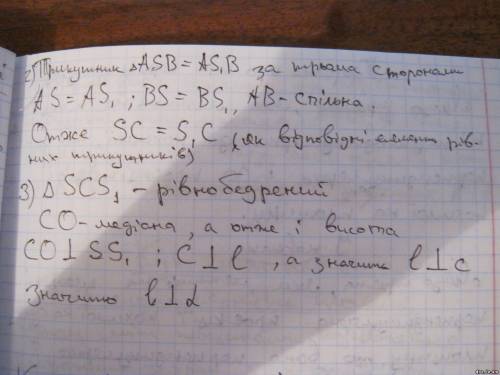 2) Трикутник ΔASB = AS₁B за трьома сторонами
AS = AS₁ ; BS = BS₁, AB - спільна.
Отже SC = S₁C (як відповідні елемен рів-
них трикутників)
3) Δ SCS₁ - рівнобедрений
CO - медіана, а отже і висота
CO ⊥ SS₁ ; C ⊥ l , а значить l ⊥ c
Значить l ⊥ α